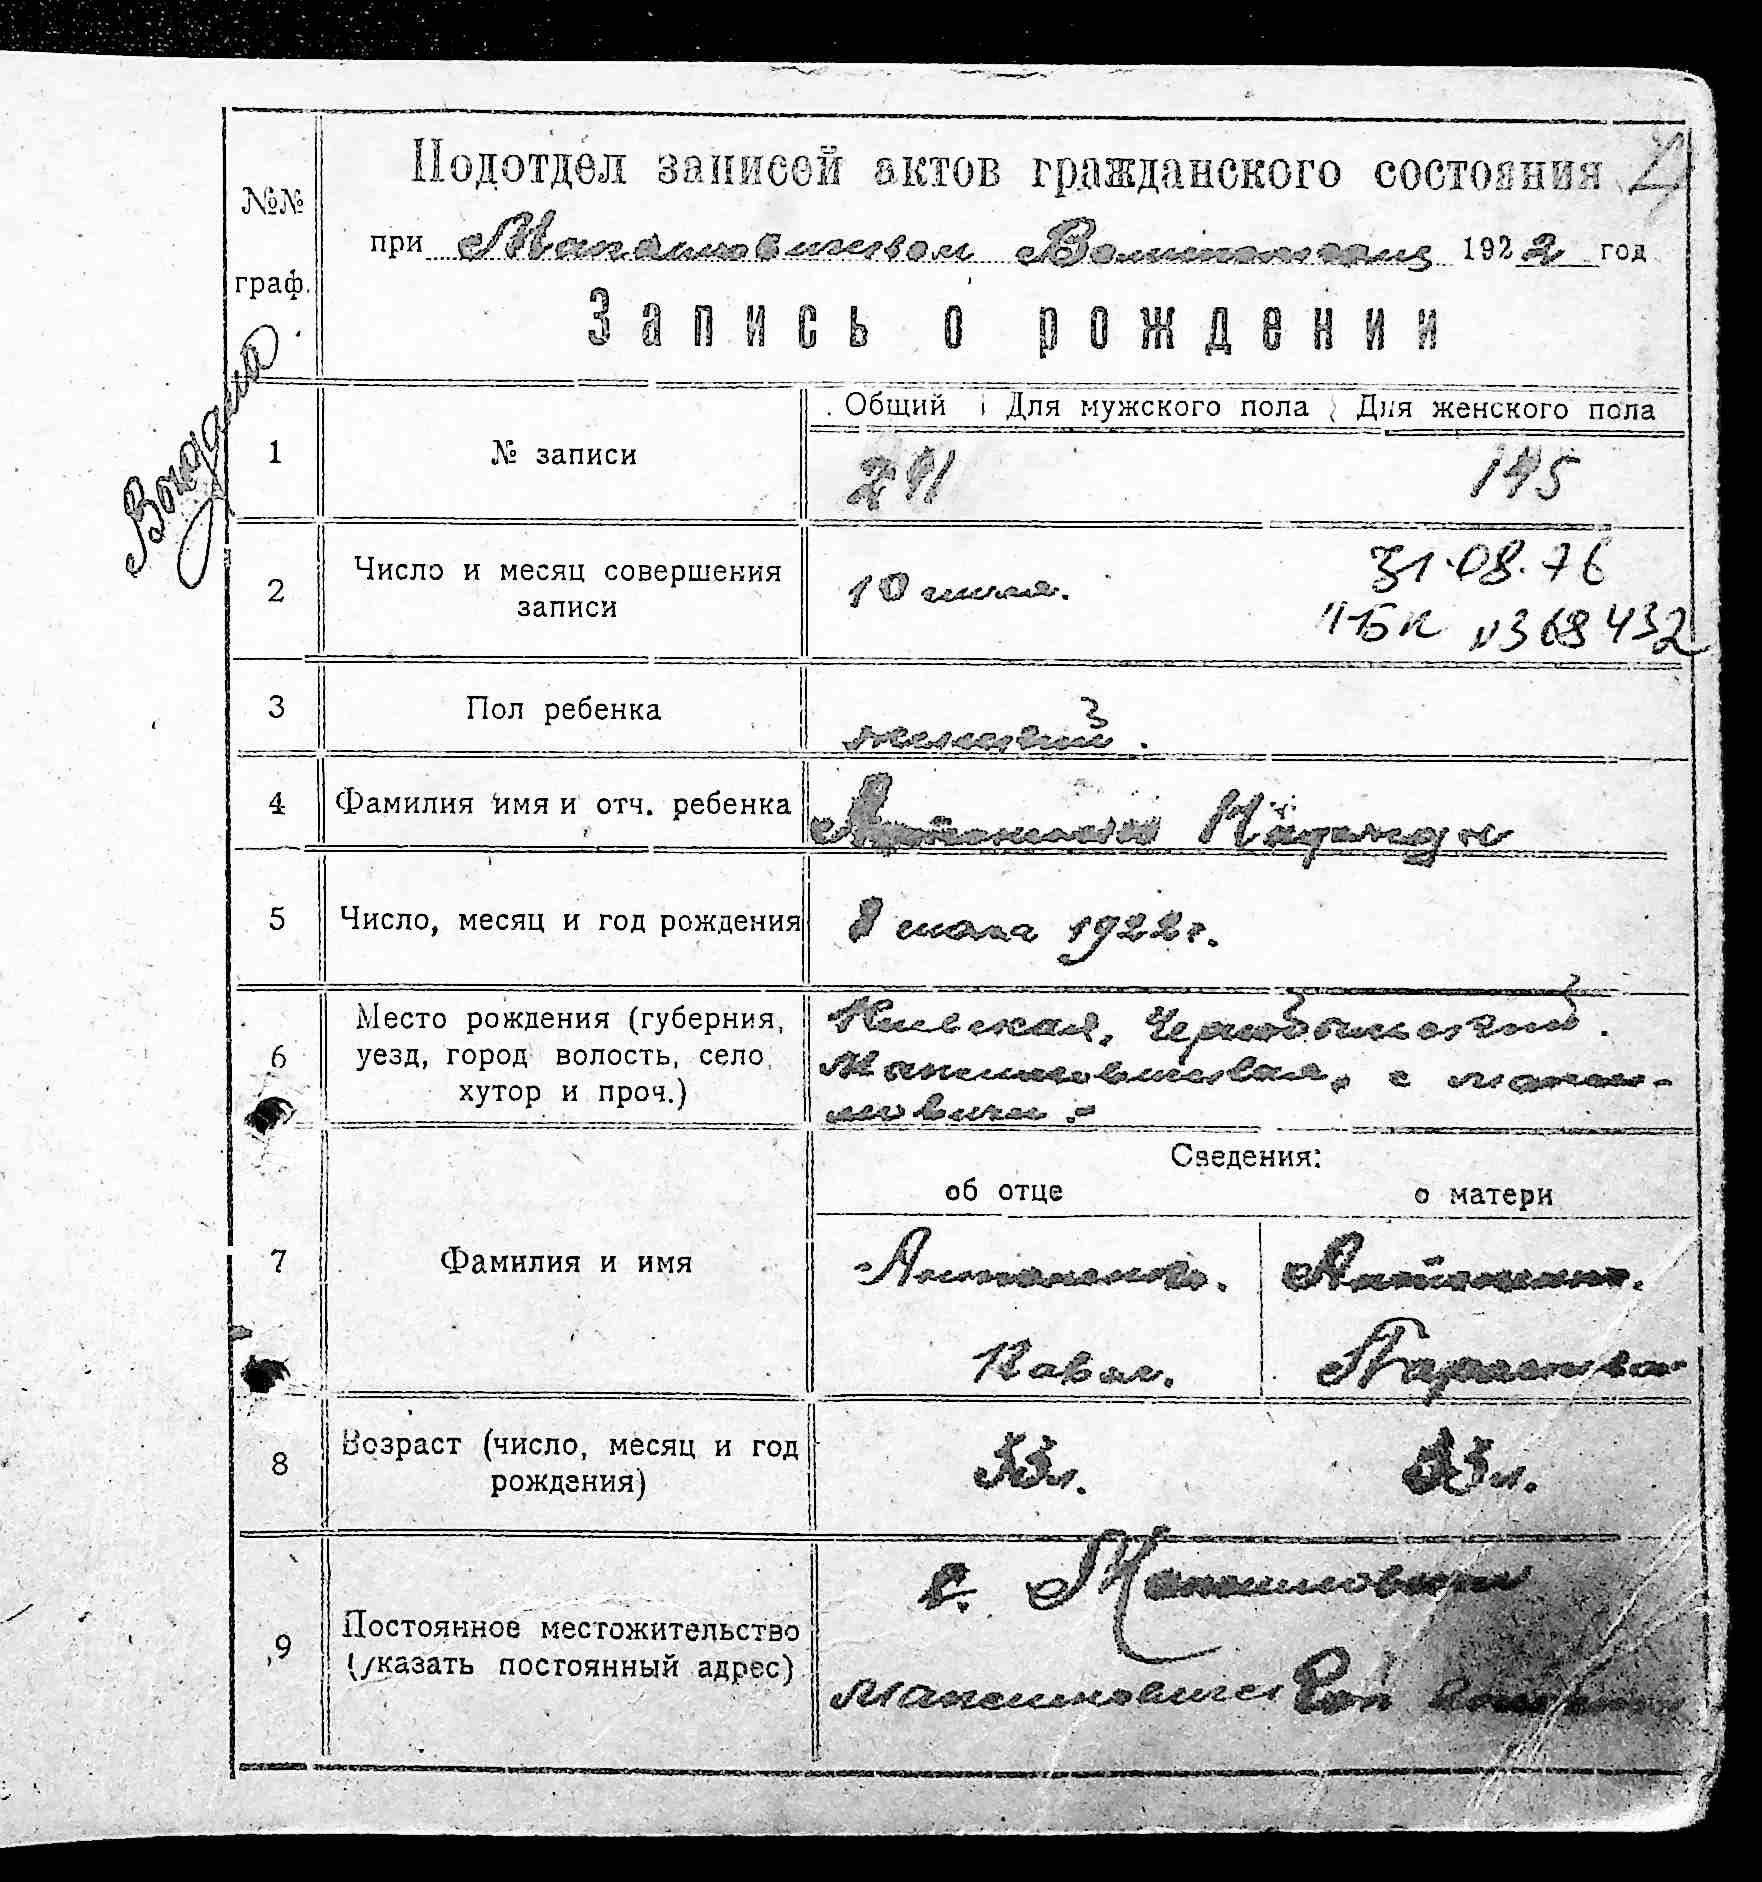 №№ граф.
Подотдел записей актов гражданского состояния
при Максимовичском Волисполкоме 1922 год
Запись о рождении
Общий Для мужского пола Для женского пола
1 № записи 291 145
2 Число и месяц совершения
записи
10 июля.
31.08.76
ІІ-БК №368432
3 Пол ребенка
женский.
4 Фамилия имя и отч. ребенка
Антоненко
5 Число, месяц и год рождения
8 июля 1922 г.
6 Место рождения (губерния,
уезд, город волость, село,
хутор и проч.)
Киевская, Чернобыльский.
Максимовичская, с. Макси-
мовичи.
Сведения:
об отце о матери
7 Фамилия и имя
Антоненко. Антоненко.
Павел.
8 Возраст (число, месяц и год
рождения)
33 л. 33 л.
9 Постоянное местожительство
(указать постоянный адрес)
с. Максимовичи